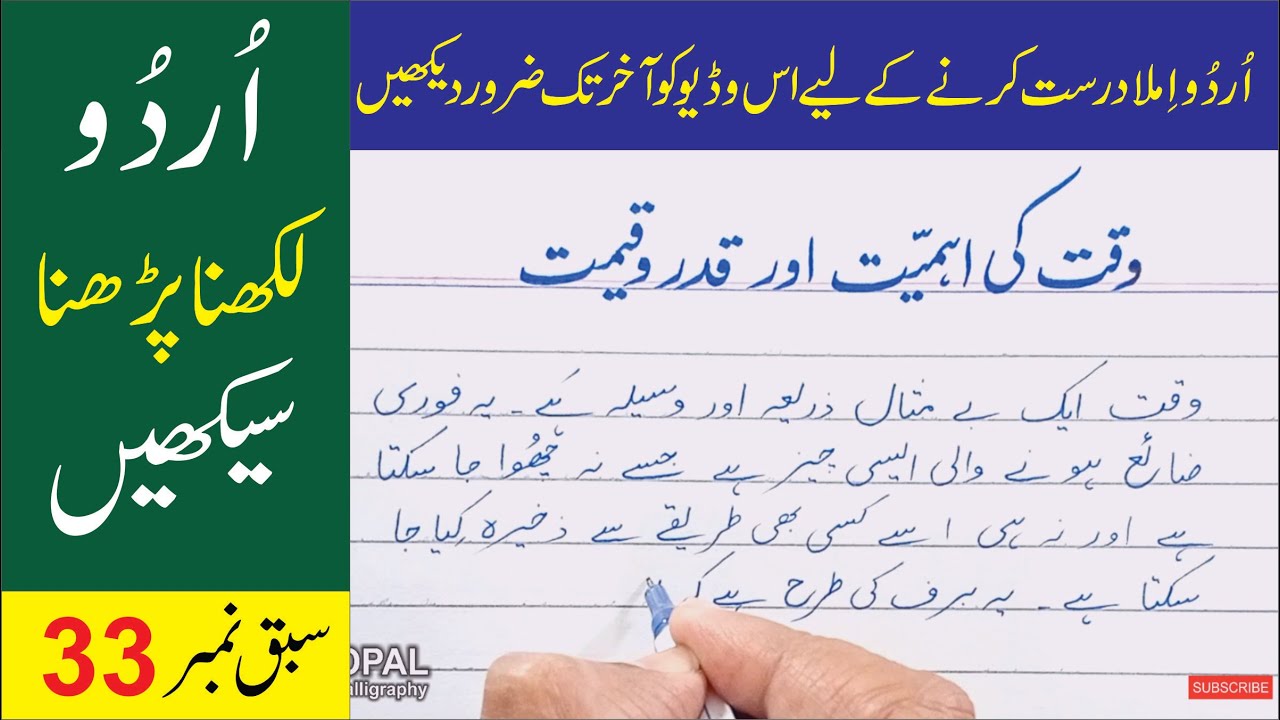 اُردُو
لکھنا پڑھنا
سیکھیں
سبق نمبر 33
اُردُو اِملا درست کرنے کے لیے اس وڈیو کو آخر تک ضرور دیکھیں
وقت کی اہمیّت اور قدر و قیمت
وقت ایک بے مثال ذریعہ اور وسیلہ ہے۔ یہ فوری
ضائع ہونے والی ایسی چیز ہے جسے نہ چُھوا جا سکتا
ہے اور نہ ہی اسے کسی بھی طریقے سے ذخیرہ کِیا جا
سکتا ہے۔ یہ برف کی طرح ہے کہ
OPAL
alligraphy
SUBSCRIBE